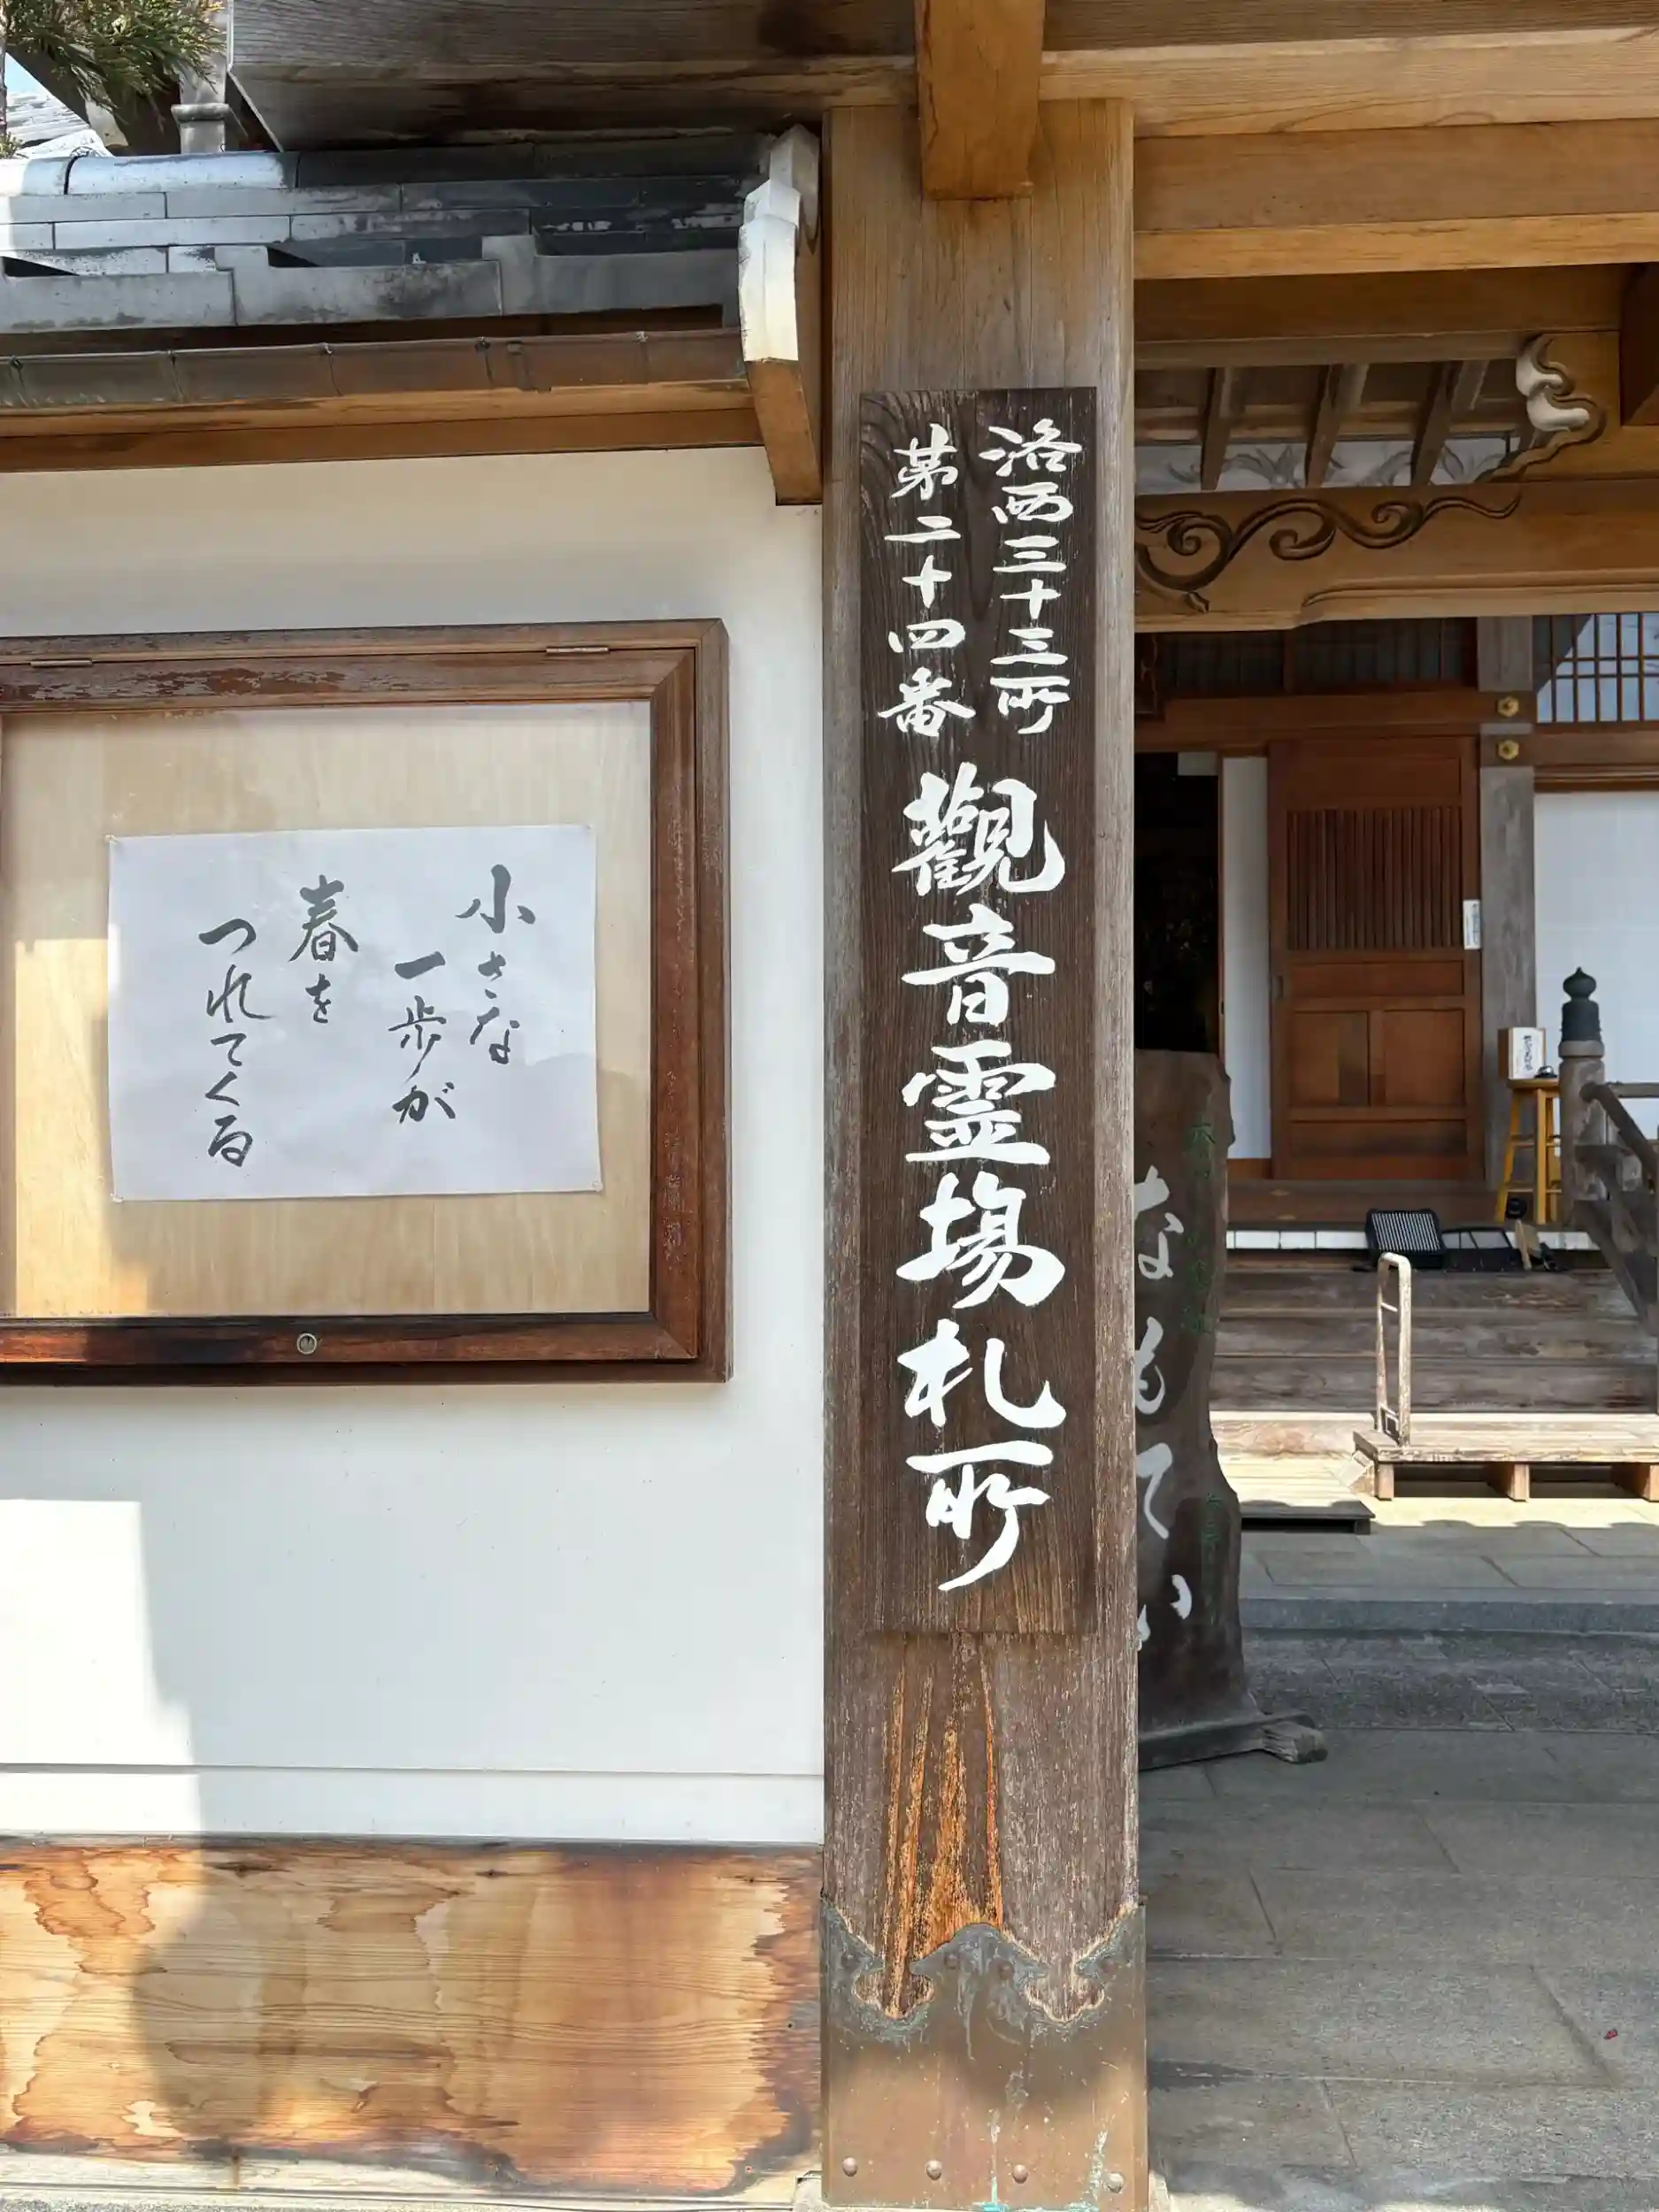 洛西三十三所
第二十四番
觀音霊場札所
小さな
一歩が
春を
つれてくる
なもてい